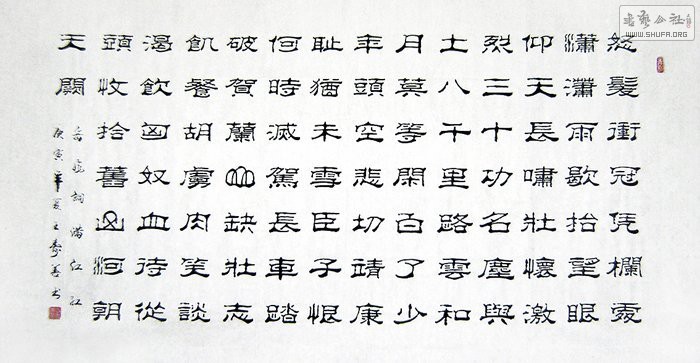 怒髮衝冠凭欄處
瀟瀟雨歇抬望眼
仰天長嘯壯懷激
烈三十功名塵與
土八千里路雲和
月莫等閑白了少
年頭空悲切靖康
恥猶未雪臣子恨
何時滅駕長車踏
破賀蘭山缺壯志
飢餐胡虜肉笑談
渴飲匈奴血待從
頭收拾舊山河朝
天闕
岳飛詞滿江紅
庚寅年夏書
书艺公社
WWW.SHUFA.ORG